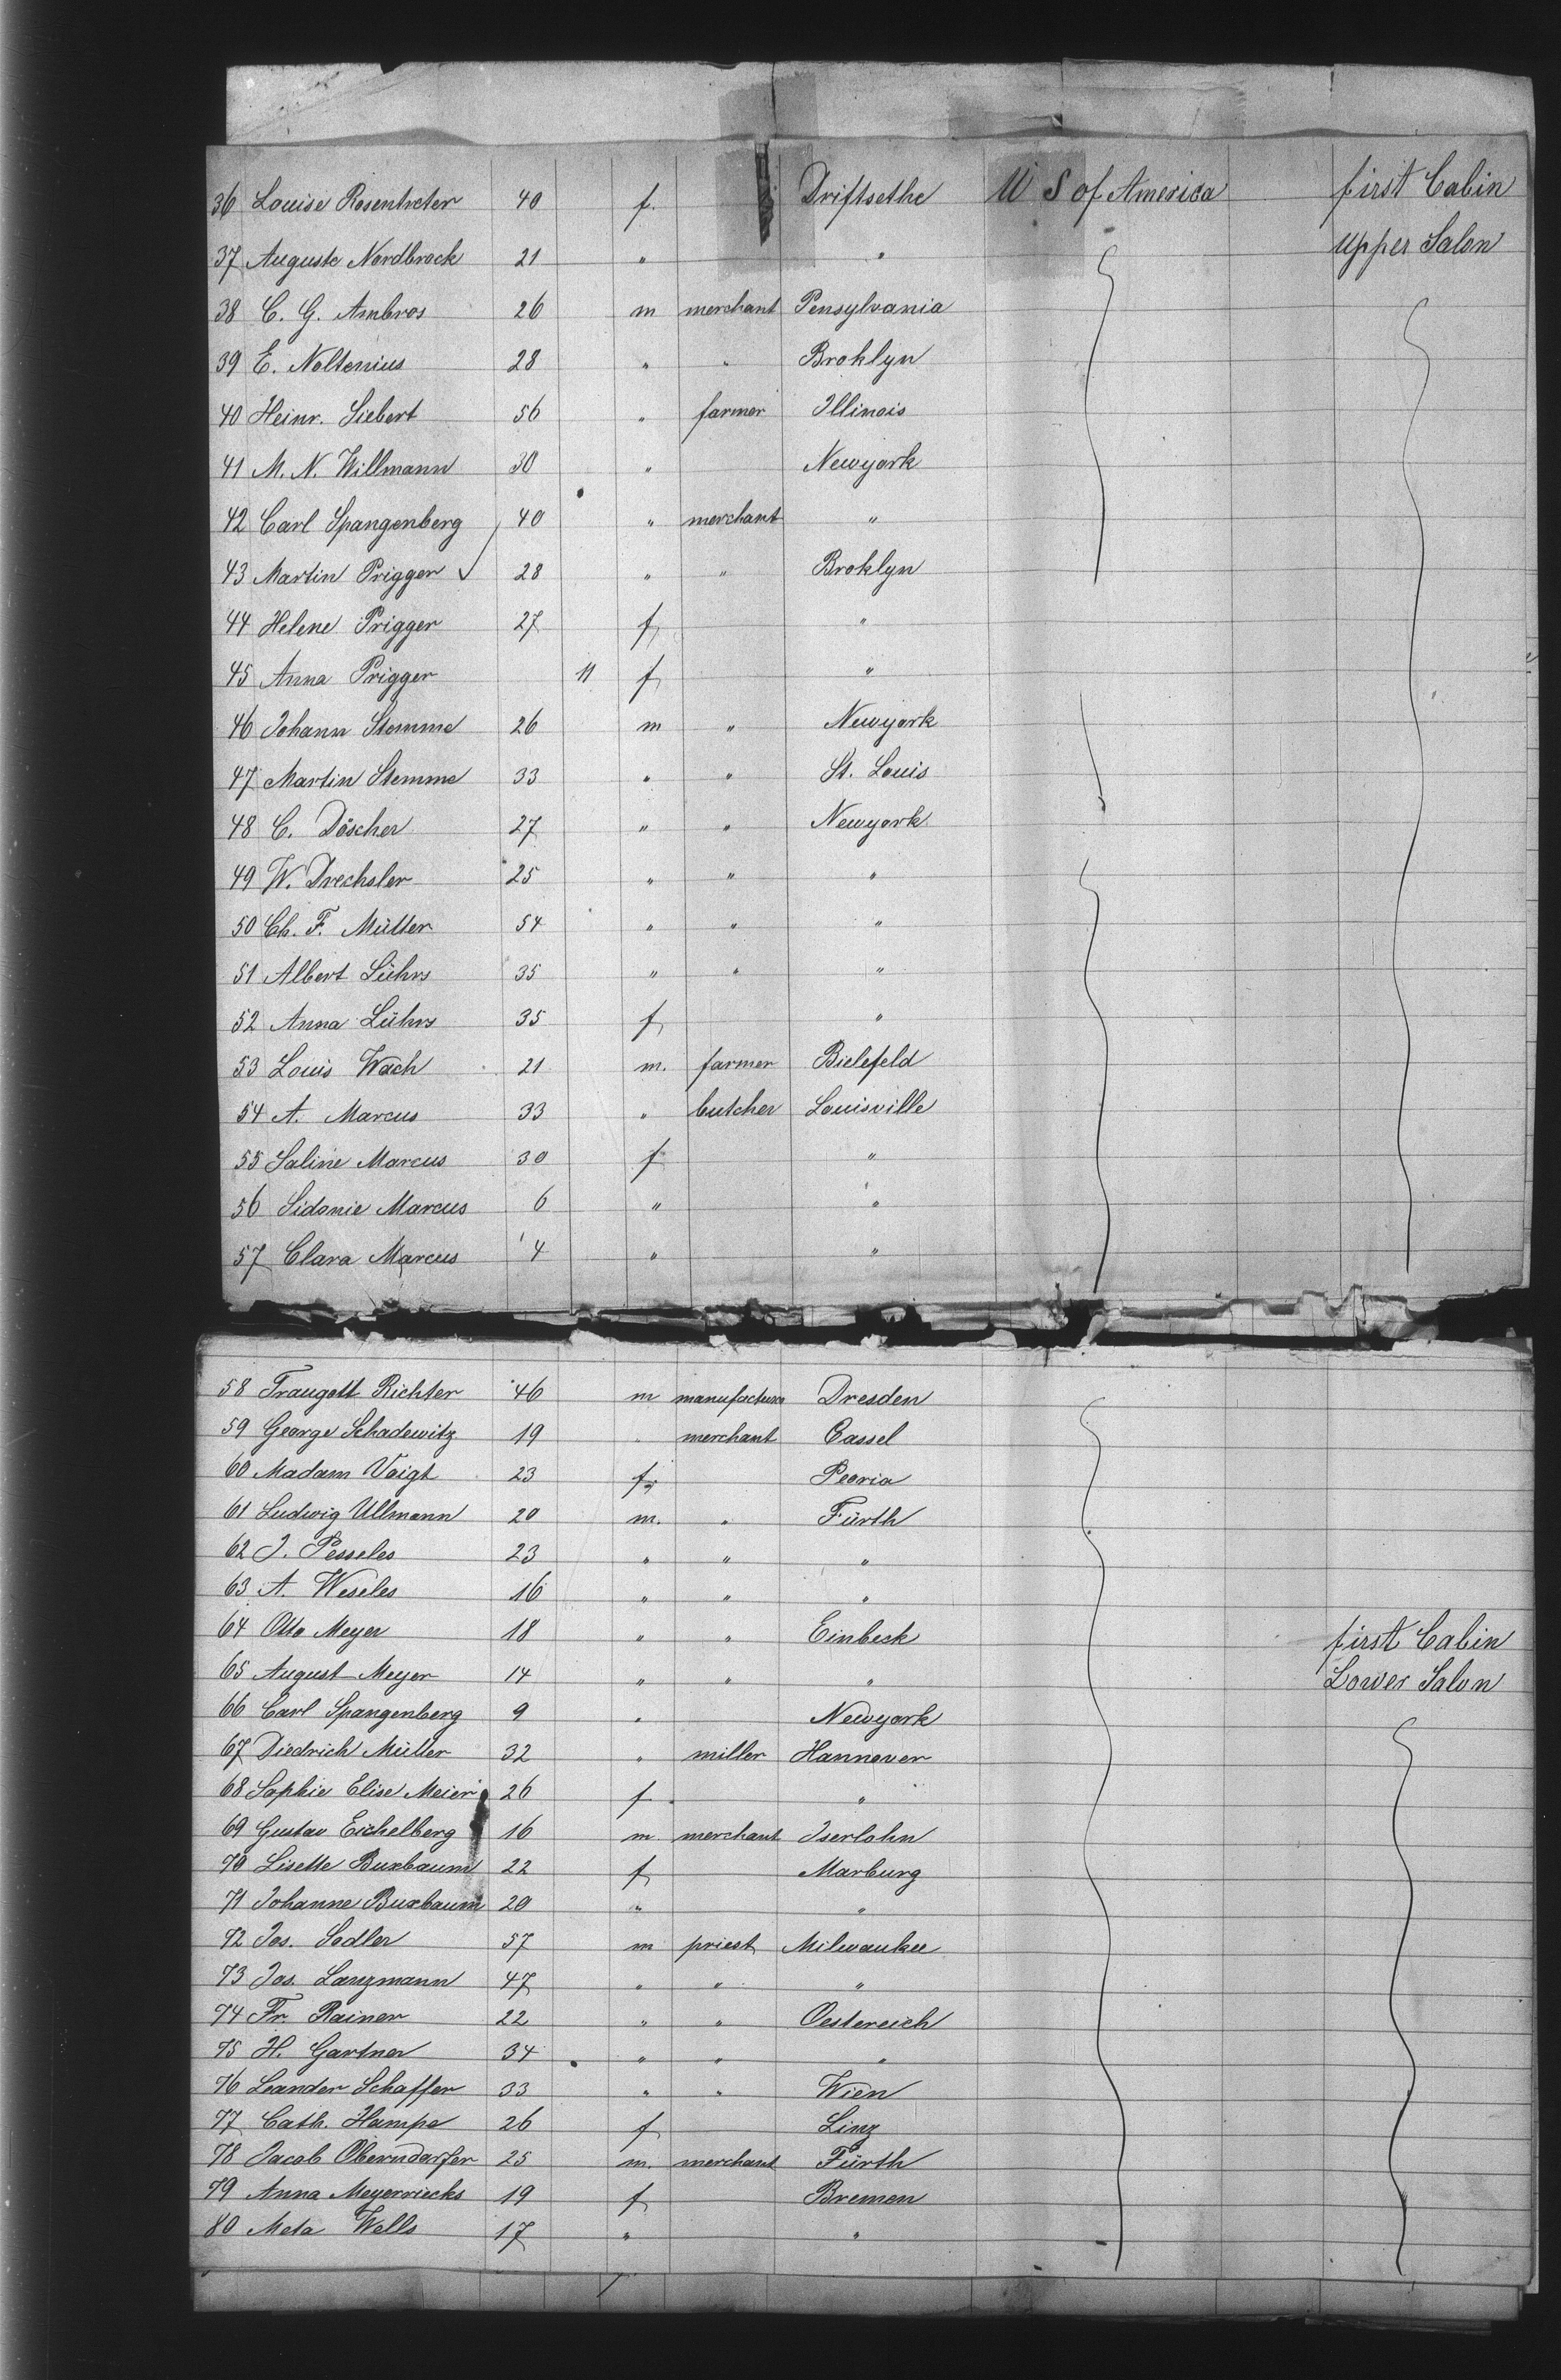 36 Louise Rosentreter 40 f. Driftsethe U S of America first Cabin
37 Auguste Nordbrock 21 " " Upper Salon
38 C. G. Ambros 26 m merchant Pensylvania
39 E. Noltenius 28 " " Brohlyn
40 Heinr. Siebert 56 " farmer Illinois
41 M. N. Willmann 30 " Newyork
42 Carl Spangenberg 40 " merchant "
43 Martin Prigger 28 " " Broklyn
44 Helene Prigger 27 f "
45 Anna Prigger 11 f "
46 Johann Stemme 26 m " Newyork
47 Martin Stemme 33 " " St. Louis
48 C. Döscher 27 " " Newyork
49 W. Drechsler 25 " " "
50 Ch. F. Müller 54 " " "
51 Albert Lührs 35 " " "
52 Anna Lührs 35 f "
53 Louis Wach 21 m. farmer Bielefeld
54 A. Marcus 33 " butcher Louisville
55 Saline Marcus 30 f "
56 Sidonie Marcus 6 " "
57 Clara Marcus 4 " "
58 Traugott Richter 46 m manufacturer Dresden
59 George Schadewitz 19 " merchant Cassel
60 Madam Voigt 23 f Peoria
61 Ludwig Ullmann 20 m. " Fürth
62 J. Pesseles 23 " " "
63 A. Weseles 16 " " "
64 Otto Meyer 18 " " Einbeck first Cabin
65 August Meyer 14 " " " Lower Salon
66 Carl Spangenberg 9 " Newyork
67 Diedrich Müller 32 " miller Hannover
68 Sophie Elise Meier 26 f "
69 Gustav Eichelberg 16 m merchant Iserlohn
70 Lisette Buxbaum 22 f Marburg
71 Johanne Buxbaum 20 " "
72 Jos. Sadler 57 m priest Milwaukee
73 Jos. Lanzmann 47 " " "
74 Fr. Rainer 22 " " Oestereich
75 H. Gartner 34 " " "
76 Leander Schaffer 33 " " Wien
77 Cath. Hampe 26 f Linz
78 Jacob Oberndorfer 25 m. merchant Fürth
79 Anna Meyerriecks 19 f Bremen
80 Meta Wells 17 " "